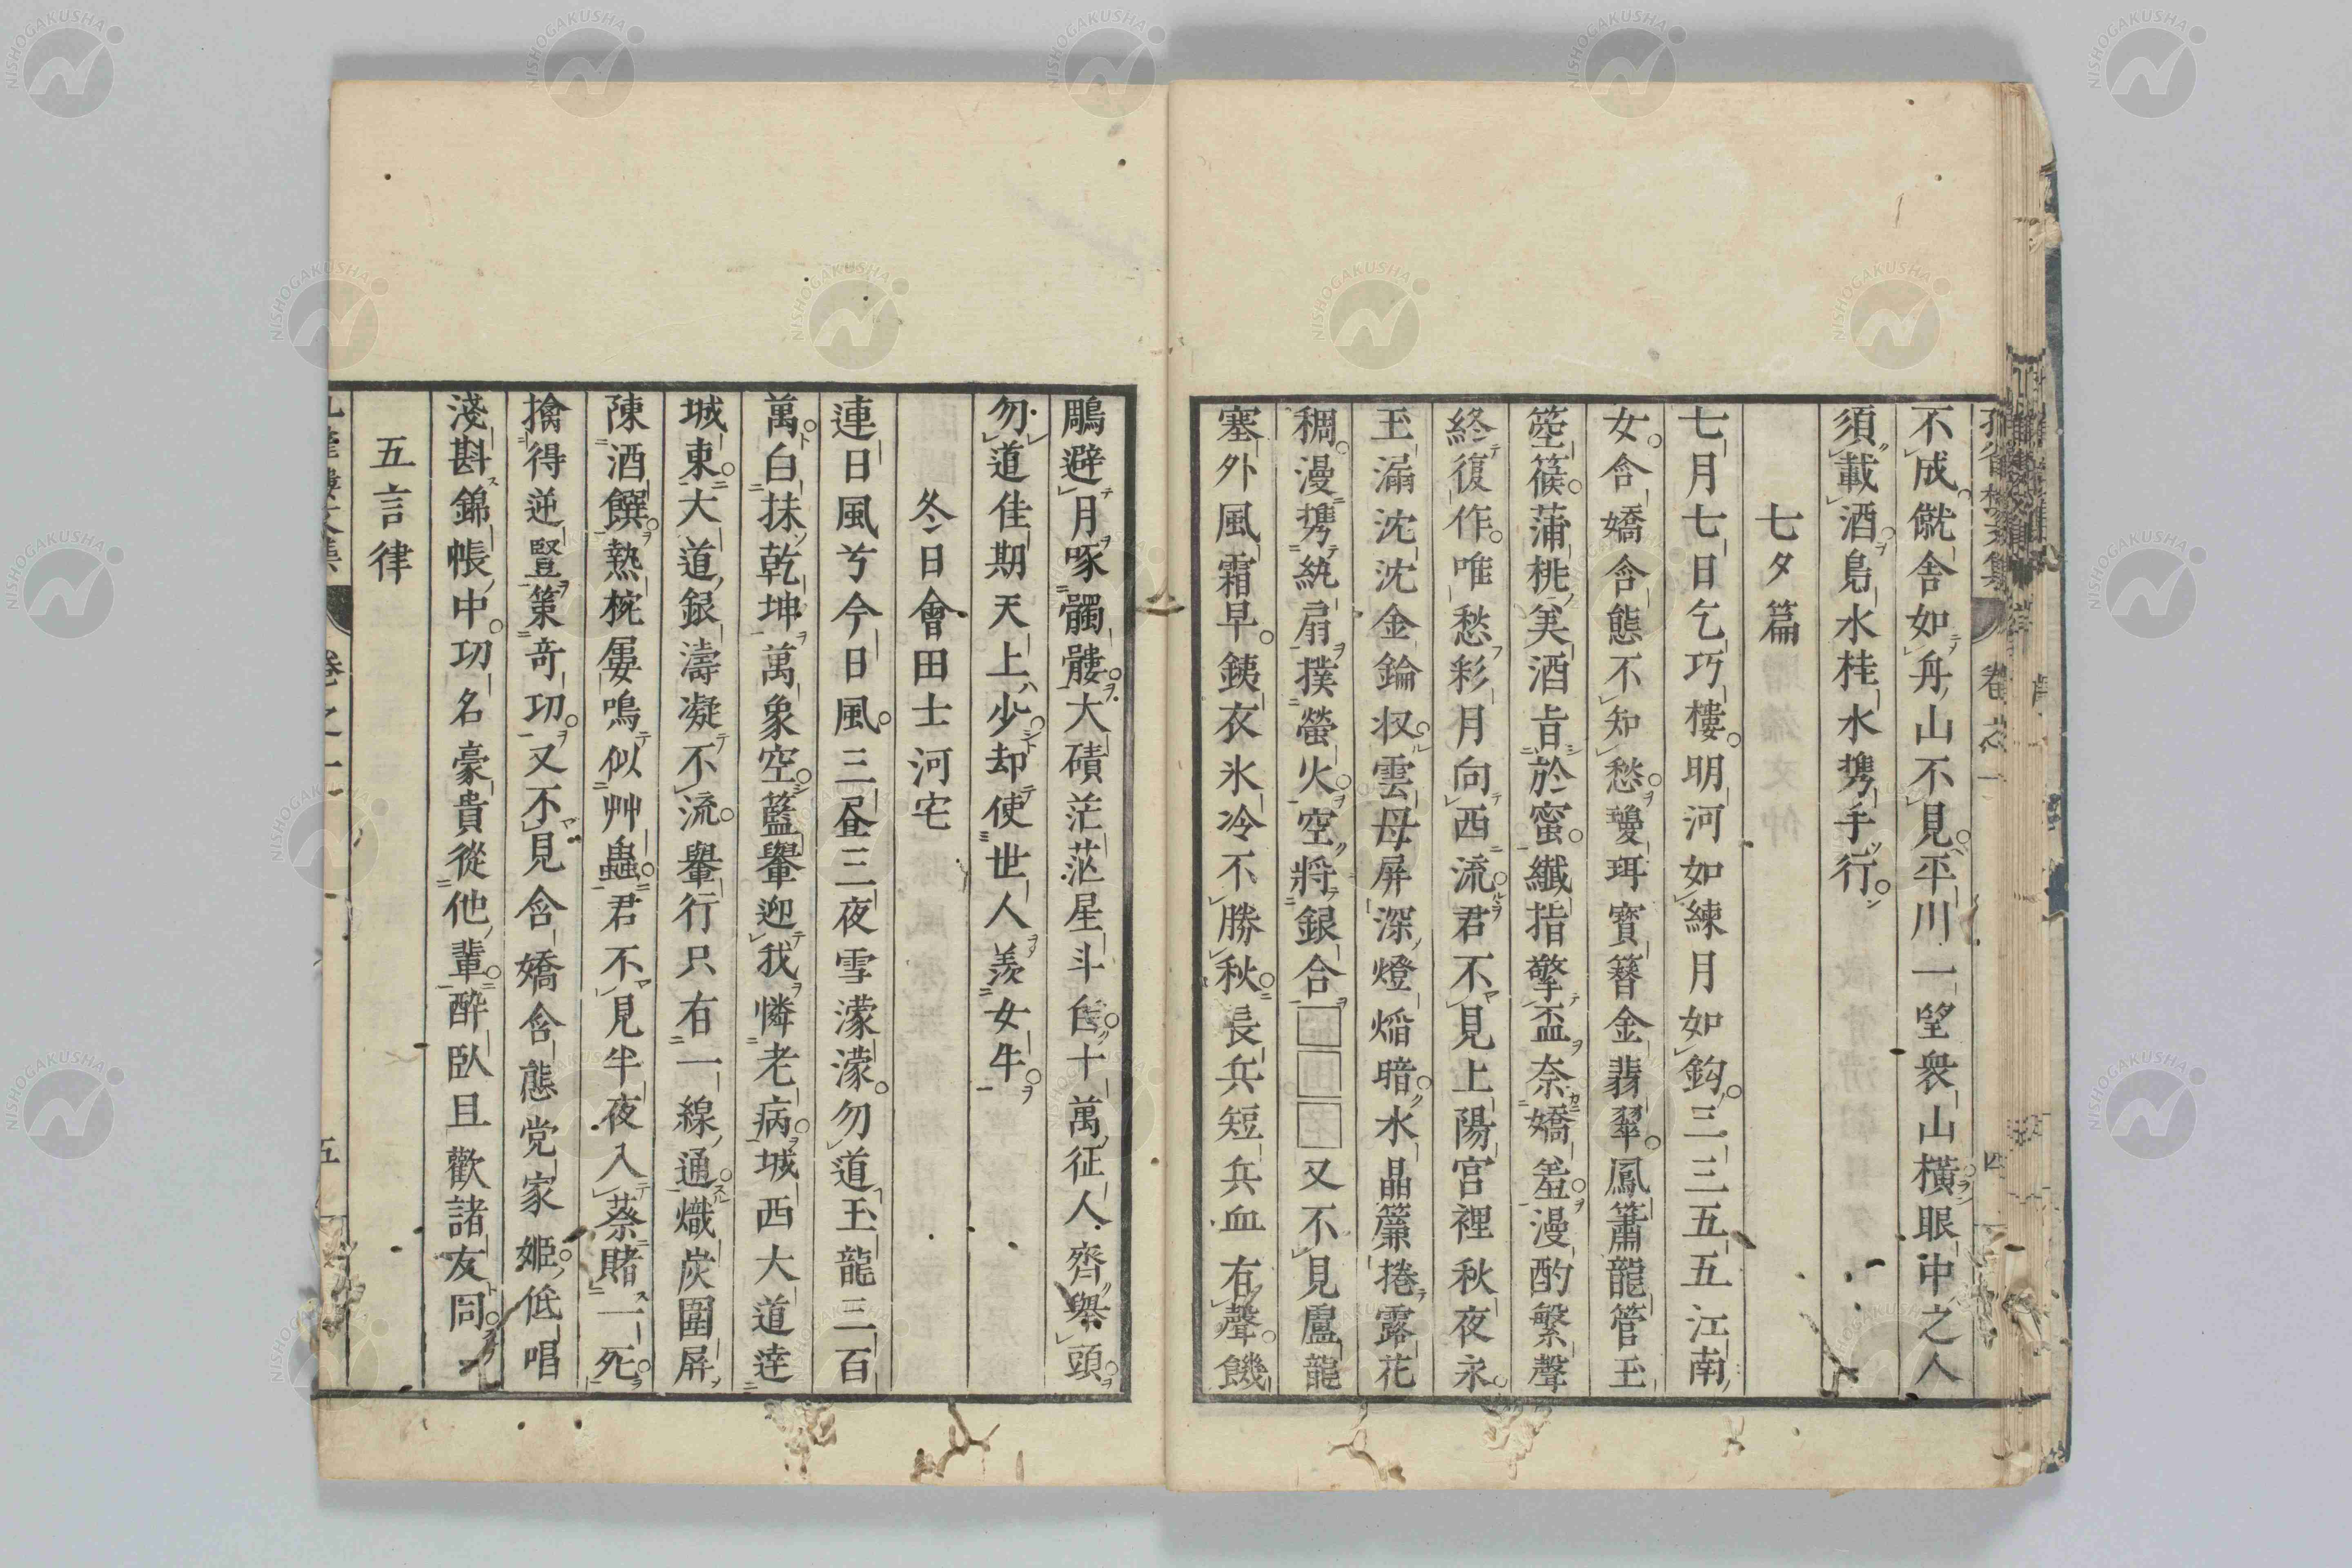 不成僦舎如舟山不見平川一望衆山橫眼中之人
須載酒鳧水桂水攜手行
七夕篇
七月七日乞巧樓明河如練月如鈎三三五五江南
女含嬌含態不知愁瓊珥寶簪金翡翠鳳簫龍管玉
箜篌蒲桃美酒旨於蜜纖指擎盃奈嬌羞漫酌繁聲
終復作唯愁彩月向西流君不見上陽宮裡秋夜永
玉漏沈沈金鑰收雲母屏深燈焰暗水晶簾捲露花
稠漫攜紈扇撲螢火空將銀合□□□又不見盧龍
塞外風霜早銕衣氷冷不勝秋長兵短兵血有聲饑
鵰避月啄髑髏大磧茫茫星斗舊十萬征人齊舉頭
勿道佳期天上少却使世人羨女牛
冬日會田士河宅
連日風兮今日風三昼三夜雪濛濛勿道玉龍三百
萬白抹乾坤萬象空籃轝迎我憐老病城西大道達
城東大道銀濤凝不流轝行只有一線通熾炭圍屏
陳酒饌熱椀屢鳴似艸蟲君不見半夜入蔡賭一死
擒得逆豎策奇功又不見含嬌含態党家姬低唱
淺斟錦帳中功名豪貴從他輩醉臥且歡諸友同
五言律
卷之一
五